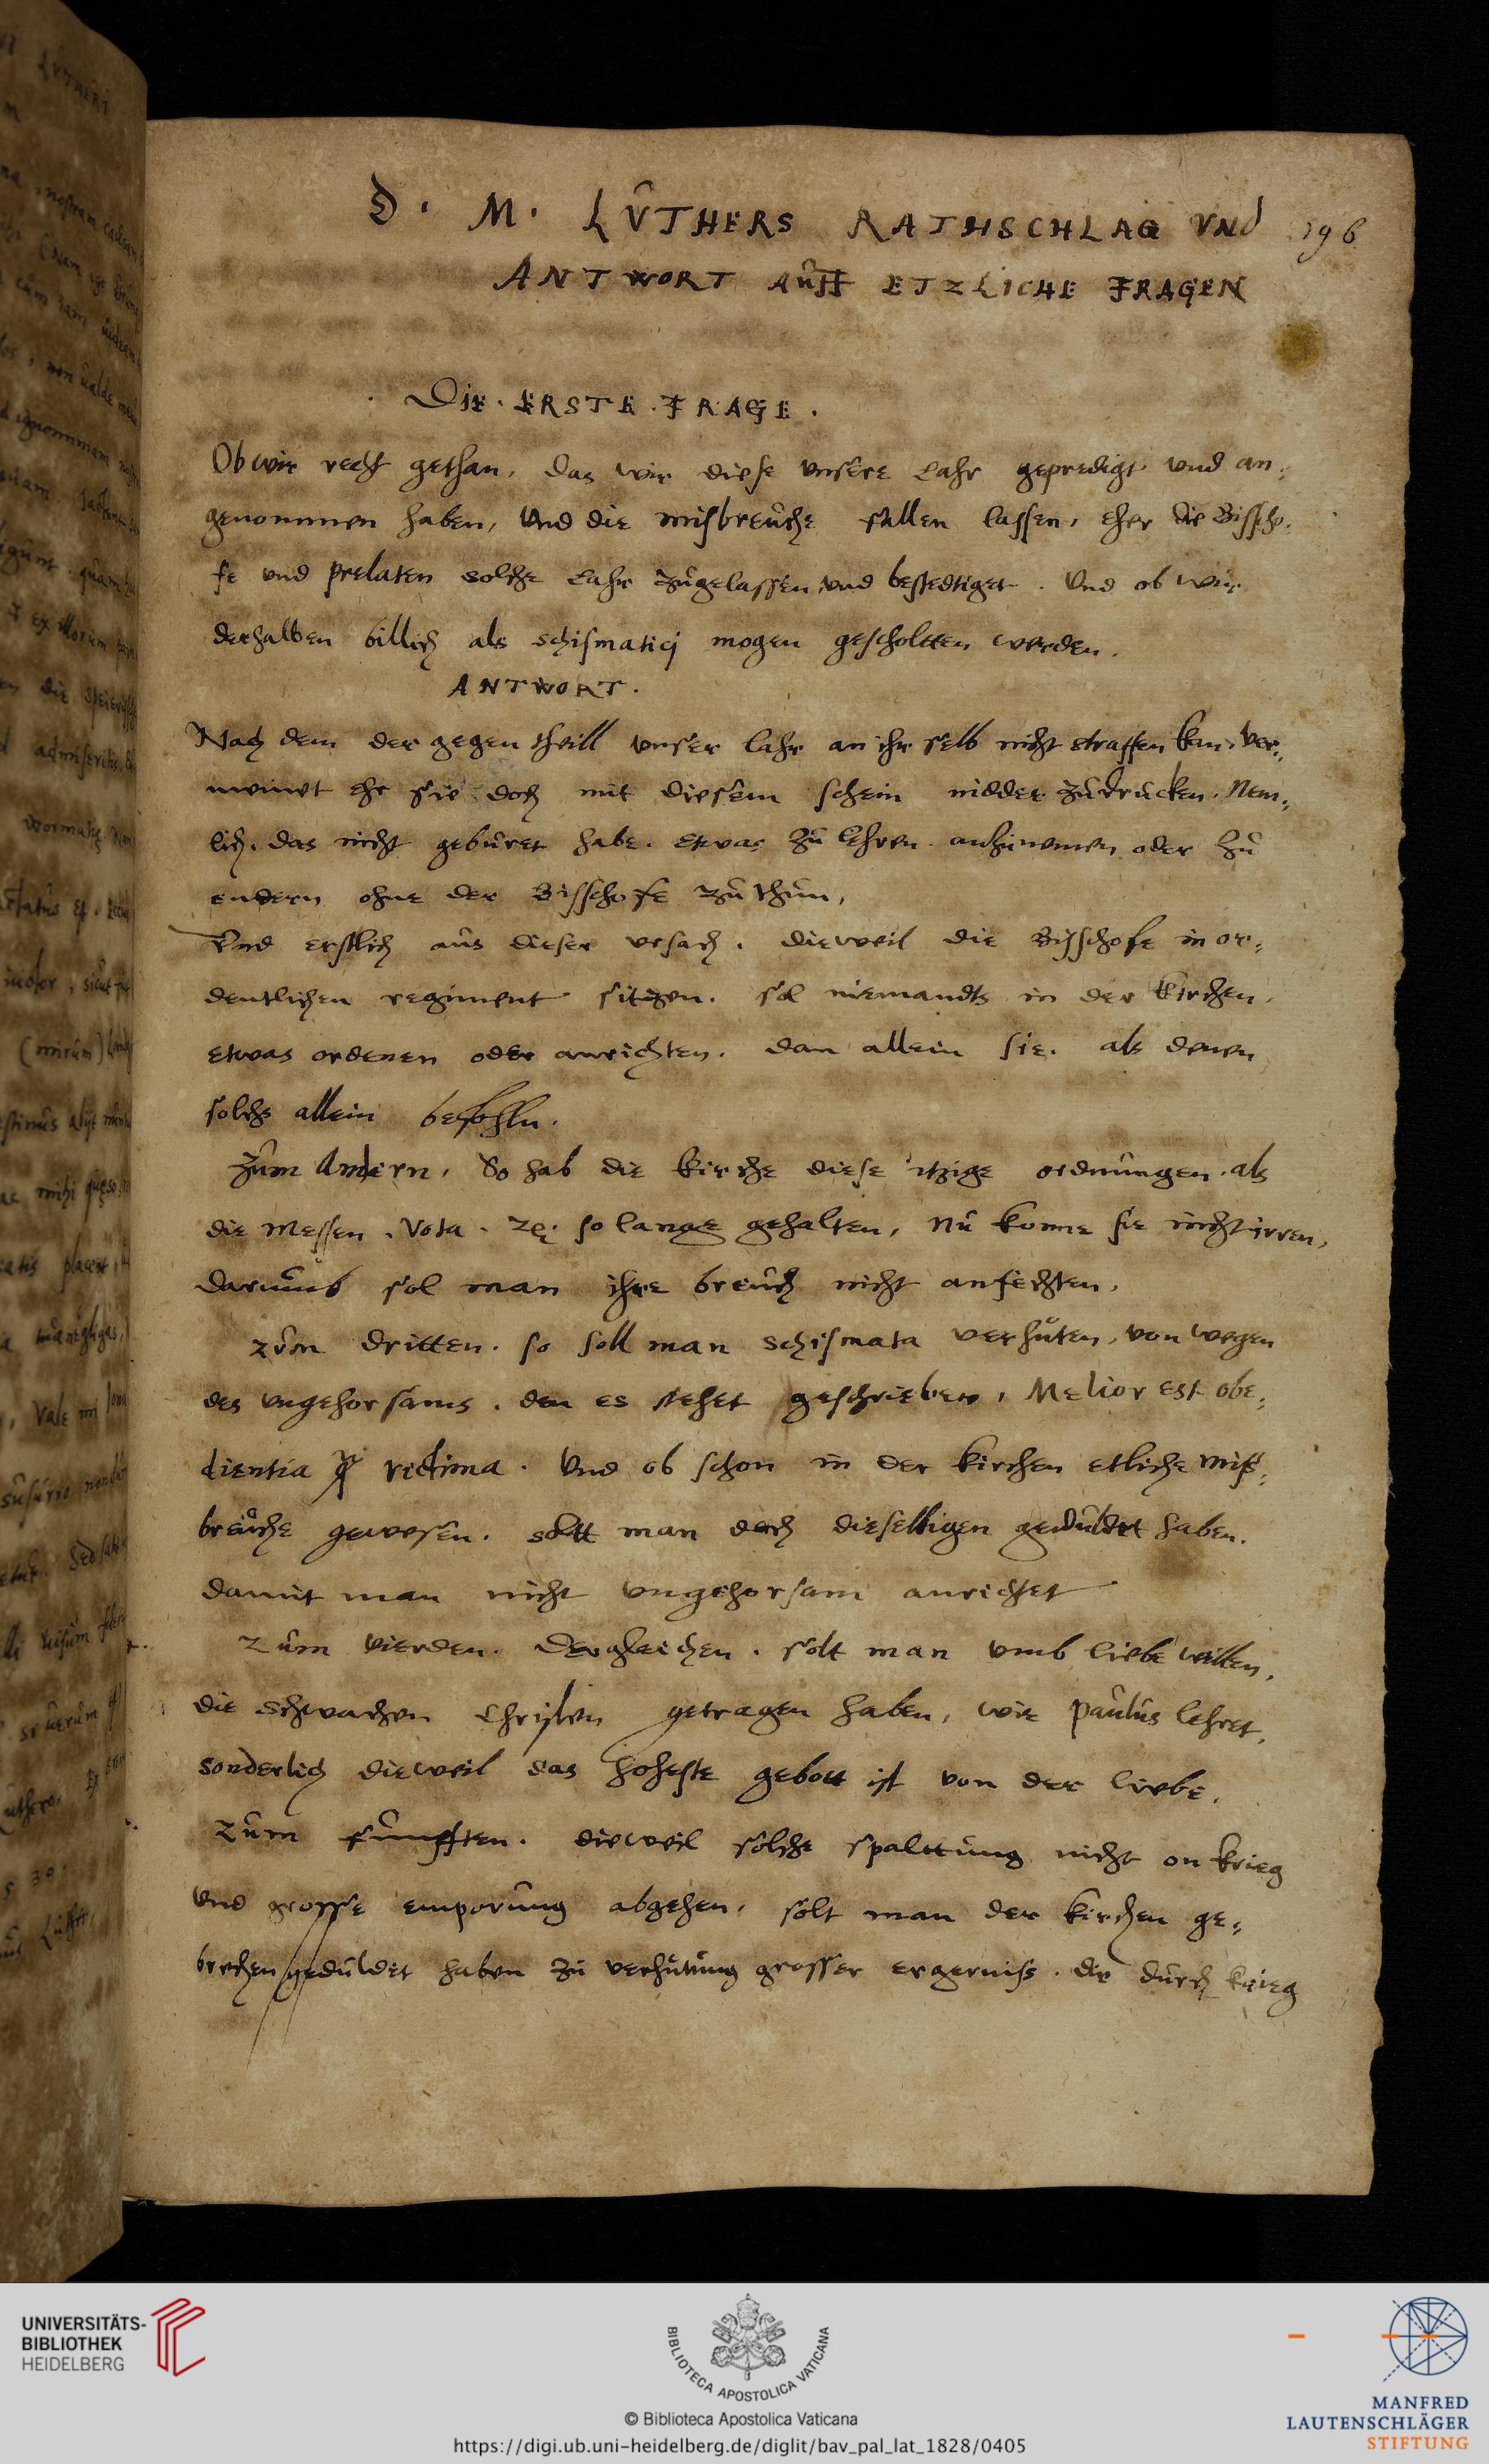 D. M. LUTHERS RATHSCHLAG VNd 196
ANTWORT AUFF ETZLICHE FRAGEN
Die. ERSTE. FRAGE.
Ob wir recht gethan, das wir diese unsere Lahr gepredigt und an-
genommen haben, Und die misbreuche fallen lassen, eher die Bisscho-
fe und prelaten solche Lahr zugelassen und bestedtiget. Und ob wir
derhalben billich als schismatici mogen gescholtten werden.
ANTWORT.
Nach dem der gegen theill unser lahr an ihr selb nicht straffen kan, ver-
meinet ehr sie doch mit diesem schein nidder zudrucken. Nem-
lich. das nicht geburet habe. etwas zu lehren. anzunemen oder zu
endern ohne der Bisschofe zuthun,
Und erstlich aus dieser ursach. dieweil die Bisschofe in or-
dentlichen regiment sitzen. sol niemandts in der kirchen,
etwas ordenen oder anrichten. dan allein sie. als denen
solchs allein befohln.
Zum Andern, So hab die kirche diese itzige ordnungen. als
die Messen. Vota. zc. so lange gehalten, Nu konne sie nicht irren,
darumb sol man ihre breuch nicht anfechten,
zum dritten. so soll man schismata verhuten, von wegen
des ungehorsams. den es stehet geschrieben, Melior est obe-
dientia ꝙ victima. Und ob schon in der kirchen etliche miß-
breuche gewesen. solt man doch dieselbigen geduldet haben.
damit man nicht ungehorsam anrichtet
Zum vierden. Dergleichen. solt man umb liebe willen,
die schwachen Christen getragen haben, wie Paulus lehret,
sonderlich dieweil das hoheste gebott ist von der liebe.
Zum funfften. dieweil solche spalttung nicht on krieg
und grosse emporung abgehen, solt man der kirchen ge-
brechen geduldet haben zu verhutung grosser ergerniss. die durch krieg
UNIVERSITÄTS-
BIBLIOTHEK
HEIDELBERG
BIBLIOTECA APOSTOLICA VATICANA
© Biblioteca Apostolica Vaticana
https://digi.ub.uni-heidelberg.de/diglit/bav_pal_lat_1828/0405
MANFRED
LAUTENSCHLÄGER
STIFTUNG